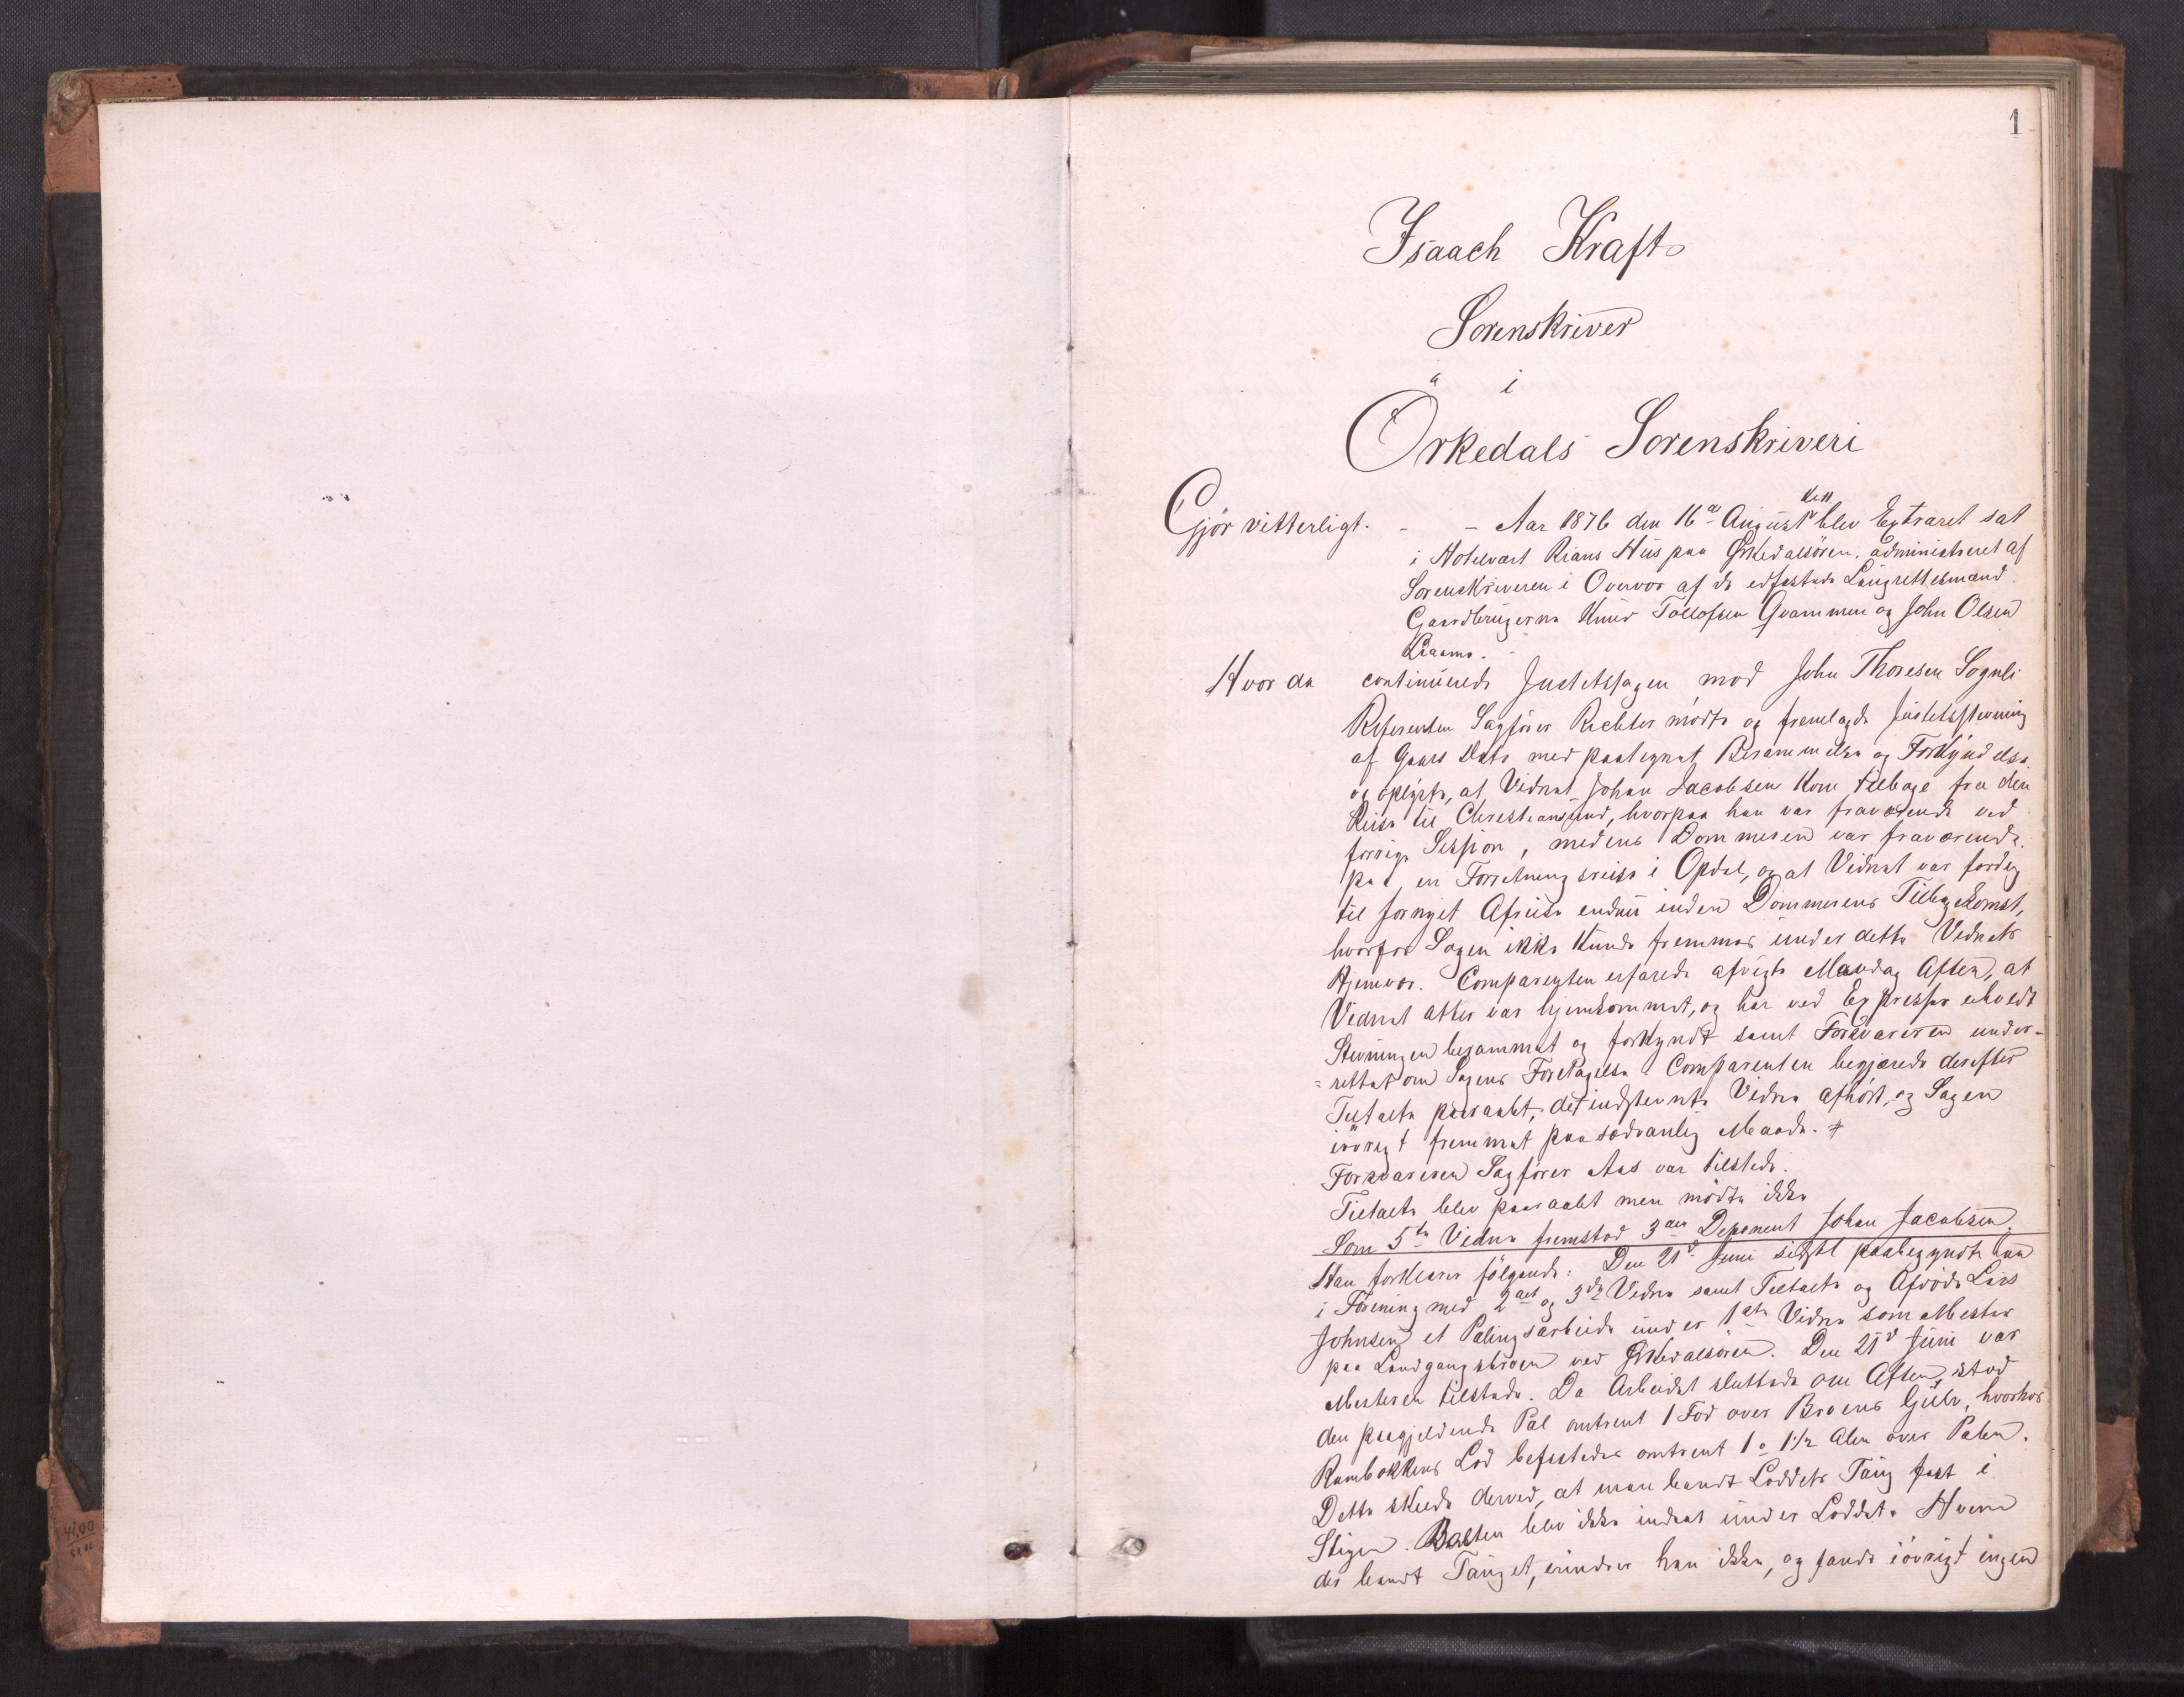 1
Isaach Kraft
Sorenskriver
i
Örkedals Sorenskriveri
Gjör vitterligt. - - Aar 1876 den 16de August blev Extraret sat
i Hotelvært Rians Hus paa Ørkedalsören, administreret af
Sorenskriveren i Overvær af de edfæstede Laugrettesmænd
Gaardbrugerne Knud Tollofsen Qvammen og John Olsen
Hvor da continuerede Justitssagen mod John Thoresen Sognli
Referenten Sagförer Richter mödte og fremlagde Justitsstevning
af Gaars Dato med paategnet Berammelse og Forkyndelse
og oplyste, at Vidnet Johan Jacobsen kom tilbage fra den
Reise til Christiansund, hvorpaa han var fraværende ved
forrige Session, medens Dommeren var fraværende
paa en Forretningsreise i Opdal, og at Vidnet var færdig
til fornyet Afreise endnu inden Dommerens Tilbagekomst,
hvorfor Sagen ikke kunde fremmes under dette Vidnets
Hjemvær. Comparenten erfarede afvigte Mandag Aften, at
Vidnet atter var hjemkommet, og har ved Expresser erholdt
Stevningen berammet og forkyndt samt Forsvareren under-
=rettet om Sagens Foretagelse. Comparenten begjærede derefter
Tiltalte paaraabt, det indstevnte Vidne afhört, og Sagen
iövrigt fremmet paa sædvanlig Maade.
Forsvareren Sagförer Aas var tilstede.
Tiltalte blev paaraabt men mödte ikke
Som 5te Vidne fremstod 3die Deponent Johan Jacobsen.
Han forklarer fölgende: Den 21de Juni sidstl paabegyndte han
i Forening med 2det og 3die Vidne samt Tiltalte og Afdöde Lars
Johnsen et Palingsarbeide under 1ste Vidne som Mester
paa Landgangsbroen ved Ørkedalsören. Den 21d Juni var
Mesteren tilstede. Da Arbeidet sluttede om Aften, stod
den paagjeldende Pæl omtrent 1 Fod over Broens Gulv, hvorhos
Rambokkens Lod befæstedes omtrent 1 a 1½ Alen over Pælen.
Dette skeede derved, at man bandt Loddets Taug fast i
Stigen. Bolten blev ikke indsat under Loddet. Hvem
der bandt Tauget, erindrer han ikke, og fandt iövrigt ingen